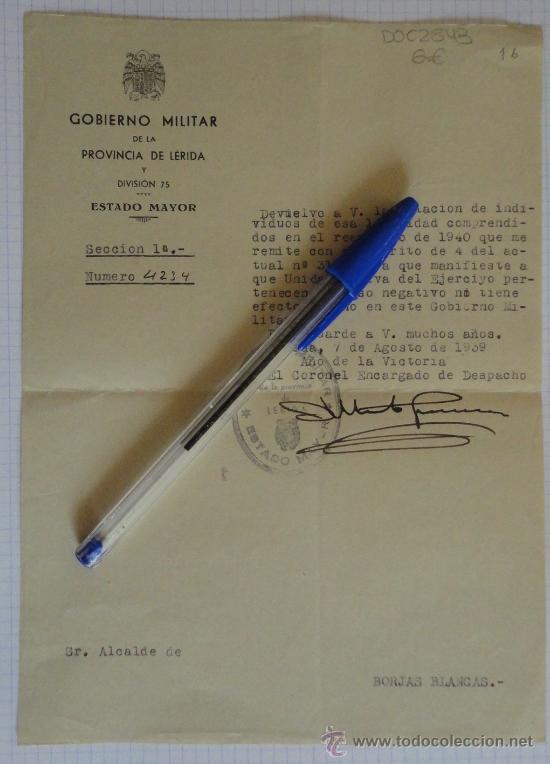 DOC2843
6€
16
GOBIERNO MILITAR
DE LA
PROVINCIA DE LÉRIDA
Y
DIVISIÓN 75
ESTADO MAYOR
Seccion 1ª.-
Numero 4234
Devuelvo a V. la relacion de indi-
viduos de esa comprendi-
dos en el de 1940 que me
remite con rito de 4 del ac-
tual nº que manifieste a
que Unidad del Ejerciyo per-
tenecen negativo no tiene
efecto en este Gobierno Mi-
lita
arde a V. muchos años.
7 de Agosto de 1939
Año de la Victoria
El Coronel Encargado de Despacho
de la provincia
ESTADO
Sr. Alcalde de
BORJAS BLANCAS.-
todocoleccion
www.todocoleccion.net